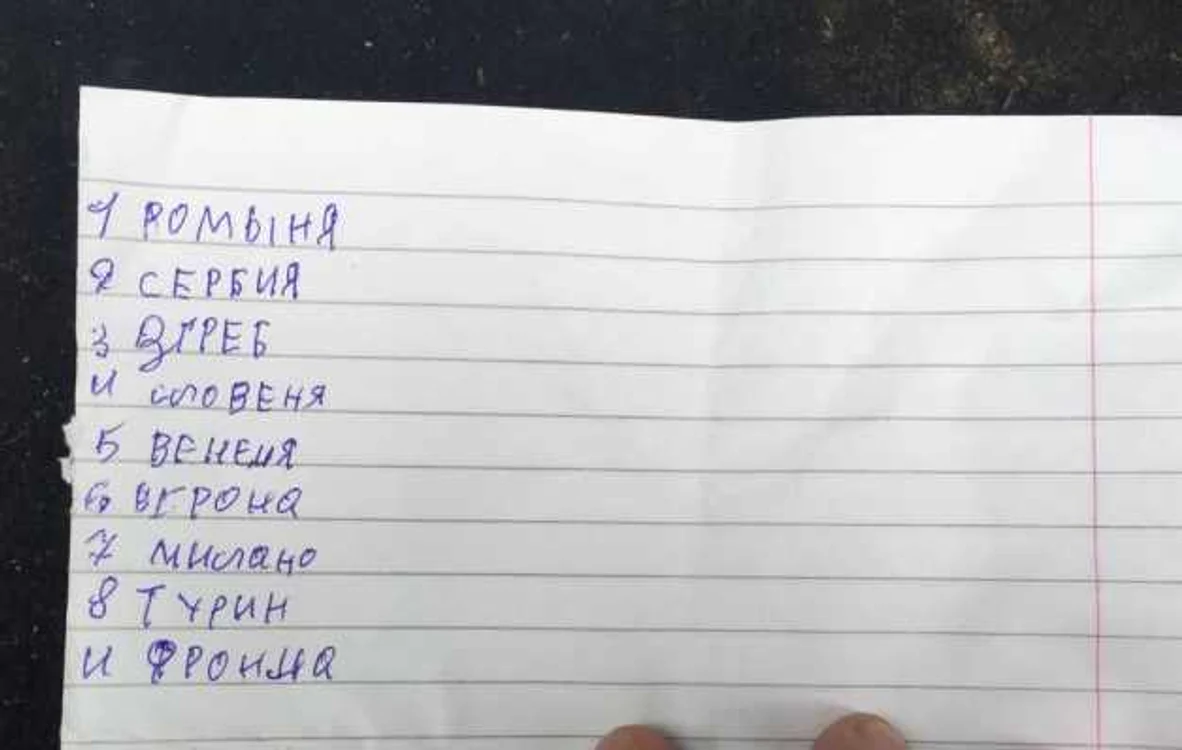 1 РОМЫНЯ
2 СЕРБИЯ
3 ЗГРЕБ
4 словЕНЯ
5 ВЕНЕЦЯ
6 ВЕРОНА
7 Милано
8 ТУРИН
и ФРОНЦА